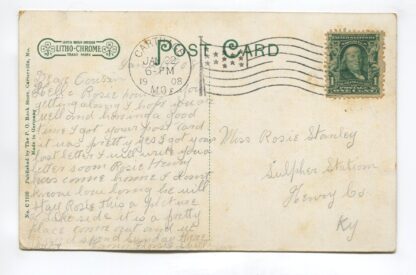 LITHO-CHROME
TRADE MARK
POST CARD
JAN 22
6-PM
1908
MO
Dear Cousin
Well Rosie how are you
getting along I hope you are
well and having a good
time I got your post card
it was pretty yes I got your
last letter I will write you a
letter soon Rosie Henry
has come home I dont
know how long he will
stay Rosie this is a picture
of Lakeside it is a pretty
place come out and
spend Sunday
Miss Rosie Stanley
Sulpher Station
Henry Co
Ky
Published by The P. O. Book Store, Carterville, Mo.
Made in Germany